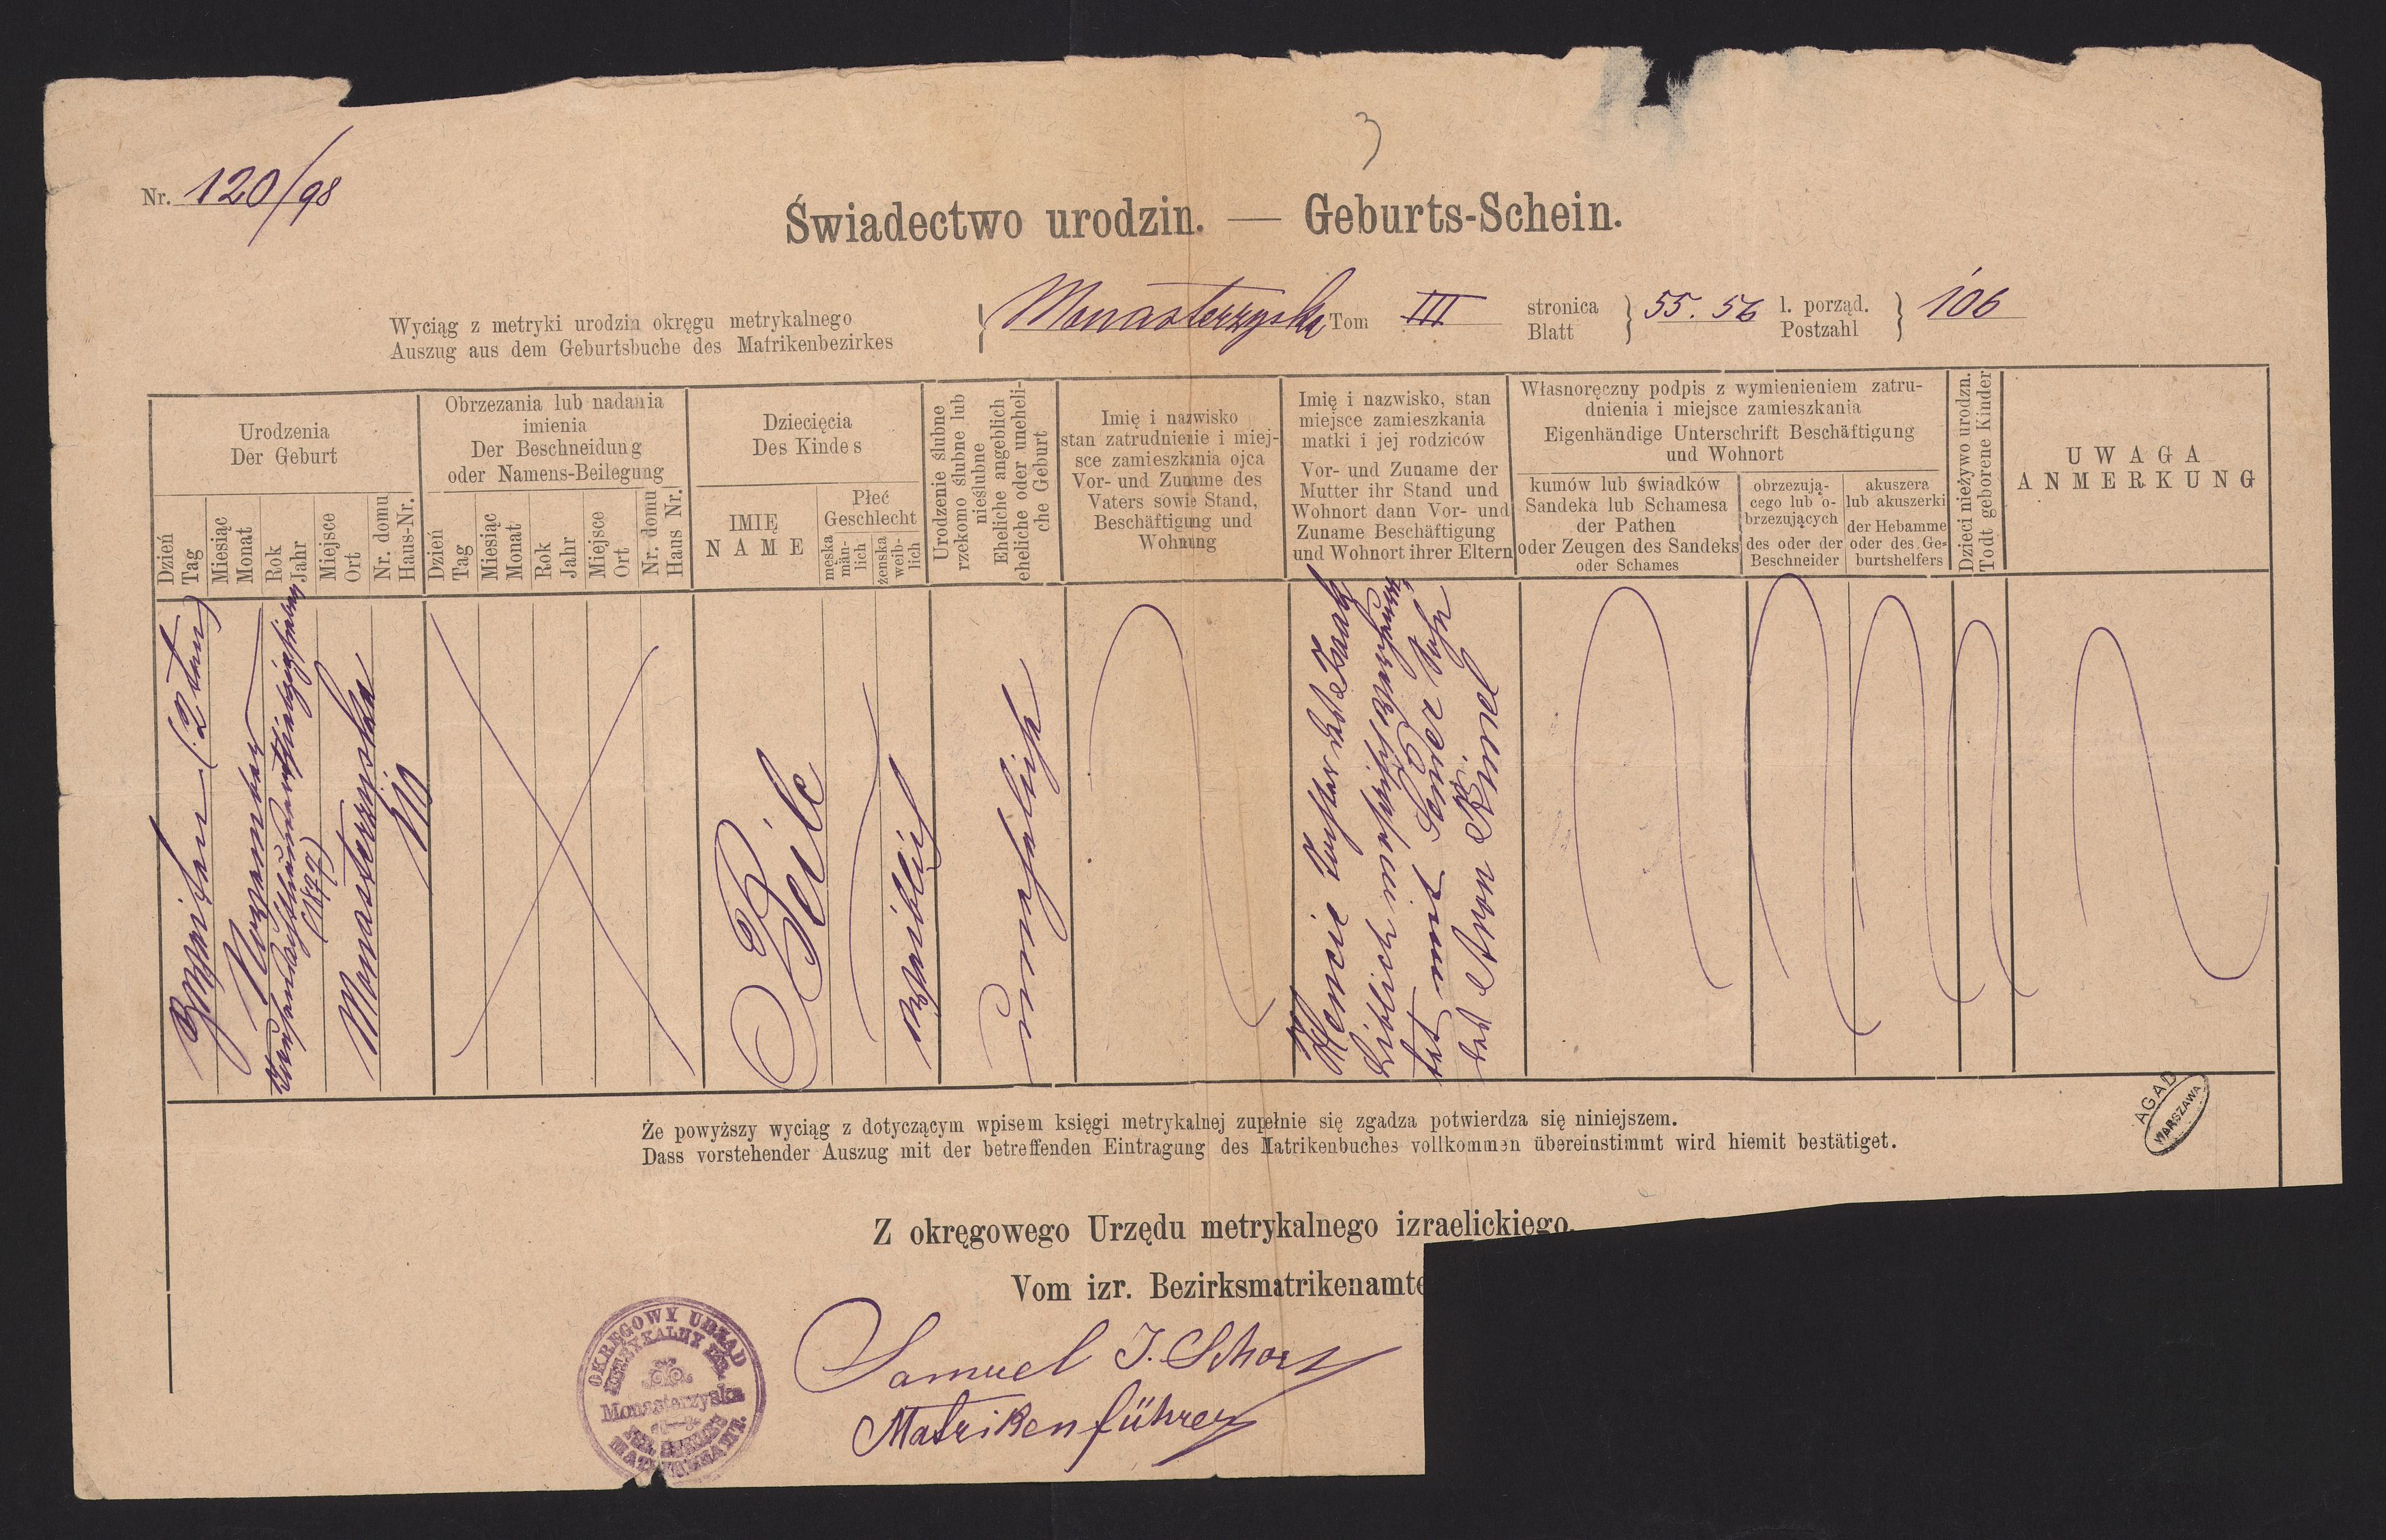 3
Nr. 120/98
Świadectwo urodzin. — Geburts-Schein.
Wyciąg z metryki urodzin okręgu metrykalnego
Auszug aus dem Geburtsbuche des Matrikenbezirkes
Monasterzyska Tom III stronica Blatt 55. 56 l. porząd. Postzahl 106
Urodzenia
Der Geburt
Dzień
Tag
Miesiąc
Monat
Rok
Jahr
Miejsce
Ort
Nr. domu
Haus-Nr.
Obrzezania lub nadania
imienia
Der Beschneidung
oder Namens-Beilegung
Dzień
Tag
Miesiąc
Monat
Rok
Jahr
Miejsce
Ort
Nr. domu
Haus Nr.
Dziecięcia
Des Kindes
IMIĘ
NAME
Płeć
Geschlecht
męska
män-
lich
żenska
weib-
lich
Urodzenie ślubne
rzekomo ślubne lub
nieślubne
Eheliche angeblich
eheliche oder uneheli-
che Geburt
Imię i nazwisko
stan zatrudnienie i miej-
sce zamieszkania ojca
Vor- und Zuname des
Vaters sowie Stand,
Beschäftigung und
Wohnung
Imię i nazwisko, stan
miejsce zamieszkania
matki i jej rodziców
Vor- und Zuname der
Mutter ihr Stand und
Wohnort dann Vor- und
Zuname Beschäftigung
und Wohnort ihrer Eltern
Własnoręczny podpis z wymienieniem zatru-
dnienia i miejsce zamieszkania
Eigenhändige Unterschrift Beschäftigung
und Wohnort
kumów lub świadków
Sandeka lub Schamesa
der Pathen
oder Zeugen des Sandeks
oder Schames
obrzezują-
cego lub o-
brzezujących
des oder der
Beschneider
akuszera
lub akuszerki
der Hebamme
oder des Ge-
burtshelfers
Dzieci nieżywo urodzn.
Todt geborene Kinder
UWAGA
ANMERKUNG
Zweiten (2ten)
November
(1877)
Monasterzyska
Beile
weiblich
unehelich
Hencie Tochter des Isaak
Liblich
mit Sender Sohn
des Aron Kimel
Że powyższy wyciąg z dotyczącym wpisem księgi metrykalnej zupełnie się zgadza potwierdza się niniejszem.
Dass vorstehender Auszug mit der betreffenden Eintragung des Matrikenbuches vollkommen übereinstimmt wird hiemit bestätiget.
AGAD
WARSZAWA
Z okręgowego Urzędu metrykalnego izraelickiego.
Vom izr. Bezirksmatrikenamte
OKRĘGOWY URZĄD
METRYKALNY IZR.
Monasterzyska
Samuel J. Schorr
Matrikenführer